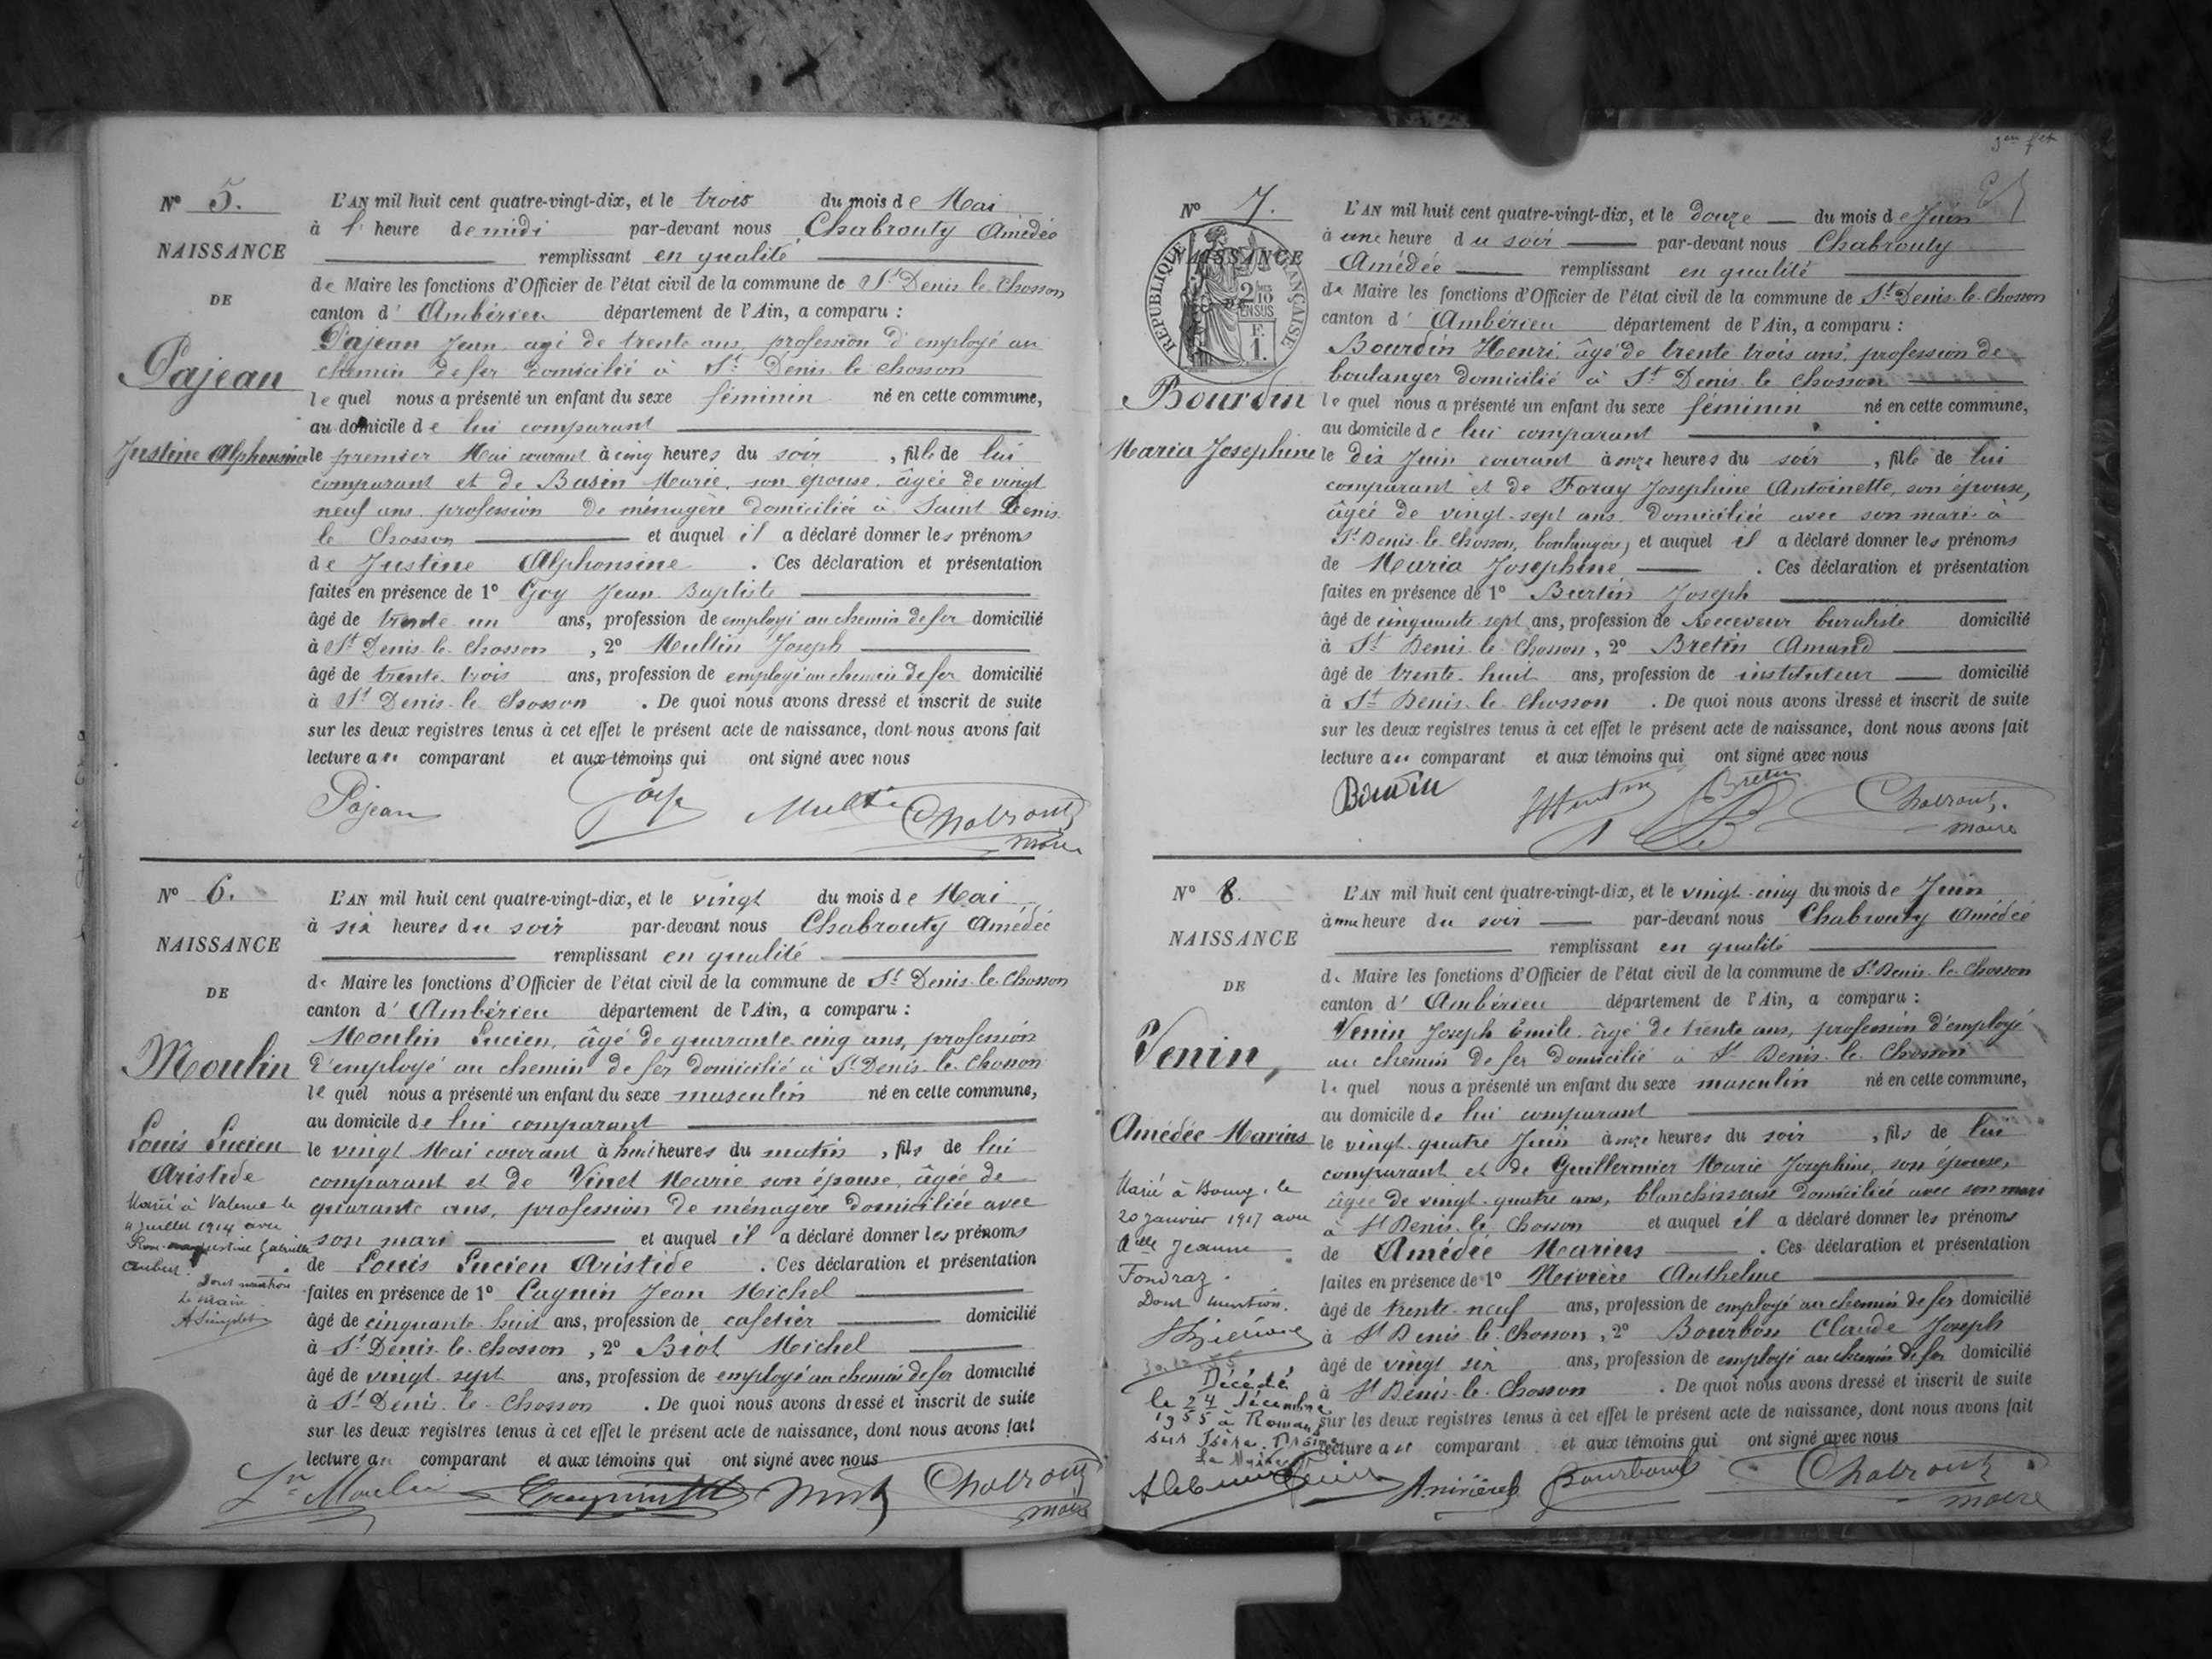 N° 5.
NAISSANCE
DE
Pajean
Justine Alphonsine
L'AN mil huit cent quatre-vingt-dix, et le trois du mois de Mai
à 1 heure de midi par-devant nous Chabrouty Amédée
remplissant en qualité
de Maire les fonctions d'Officier de l'état civil de la commune de St Denis-le-Chosson
canton d' Ambérieu département de l'Ain, a comparu :
Pajean Jean agé de trente ans, profession d'employé au
chemin de fer domicilié à St Denis le Chosson
lequel nous a présenté un enfant du sexe féminin né en cette commune,
au domicile de lui comparant
le premier Mai courant à cinq heures du soir, fille de lui
comparant et de Basin Marie, son épouse, âgée de vingt
neuf ans, profession de ménagère domiciliée à Saint Denis
le Chosson et auquel il a déclaré donner les prénoms
de Justine Alphonsine. Ces déclaration et présentation
faites en présence de 1° Goy Jean Baptiste
âgé de trente un ans, profession de employé au chemin de fer domicilié
à St Denis-le-Chosson, 2° Mullin Joseph
âgé de trente trois ans, profession de employé au chemin de fer domicilié
à St Denis-le-Chosson. De quoi nous avons dressé et inscrit de suite
sur les deux registres tenus à cet effet le présent acte de naissance, dont nous avons fait
lecture au comparant et aux témoins qui ont signé avec nous
Pajean Chabrouty
maire
N° 6.
NAISSANCE
DE
Moulin
Louis Lucien
Aristide
Marié à Valence le
4 Juillet 1914 avec
Gabrielle
Dont mention
Le Maire
L'AN mil huit cent quatre-vingt-dix, et le vingt du mois de Mai
à six heures du soir par-devant nous Chabrouty Amédée
remplissant en qualité
de Maire les fonctions d'Officier de l'état civil de la commune de St Denis-le-Chosson
canton d' Ambérieu département de l'Ain, a comparu :
Moulin Lucien, âgé de quarante cinq ans, profession
d'employé au chemin de fer domicilié à St Denis-le-Chosson
lequel nous a présenté un enfant du sexe masculin né en cette commune,
au domicile de lui comparant
le vingt Mai courant à huit heures du matin, fils de lui
comparant et de Vinet Marie son épouse, âgée de
quarante ans, profession de ménagère domiciliée avec
son mari et auquel il a déclaré donner les prénoms
de Louis Lucien Aristide. Ces déclaration et présentation
faites en présence de 1° Cagnin Jean Michel
âgé de cinquante huit ans, profession de cafetier domicilié
à St Denis-le-Chosson, 2° Biot Michel
âgé de vingt sept ans, profession de employé au chemin de fer domicilié
à St Denis-le-Chosson. De quoi nous avons dressé et inscrit de suite
sur les deux registres tenus à cet effet le présent acte de naissance, dont nous avons fait
lecture au comparant et aux témoins qui ont signé avec nous
Moulin Chabrouty
maire
N° 7.
NAISSANCE
REPUBLIQUE FRANÇAISE
2/10 EN SUS
F. 1.
Bourdin
Maria Josephine
L'AN mil huit cent quatre-vingt-dix, et le douze du mois de Juin
à une heure du soir par-devant nous Chabrouty
Amédée remplissant en qualité
de Maire les fonctions d'Officier de l'état civil de la commune de St Denis-le-Chosson
canton d' Ambérieu département de l'Ain, a comparu :
Bourdin Henri, âgé de trente trois ans, profession de
boulanger domicilié à St Denis le Chosson
lequel nous a présenté un enfant du sexe féminin né en cette commune,
au domicile de lui comparant
le dix Juin courant à onze heures du soir, fille de lui
comparant et de Foray Josephine Antoinette, son épouse,
âgée de vingt-sept ans, domiciliée avec son mari à
St Denis-le-Chosson, boulangère, et auquel il a déclaré donner les prénoms
de Maria Josephine. Ces déclaration et présentation
faites en présence de 1° Burtin Joseph
âgé de cinquante sept ans, profession de Receveur buraliste domicilié
à St Denis-le-Chosson, 2° Bretin Amand
âgé de trente-huit ans, profession de instituteur domicilié
à St Denis-le-Chosson. De quoi nous avons dressé et inscrit de suite
sur les deux registres tenus à cet effet le présent acte de naissance, dont nous avons fait
lecture au comparant et aux témoins qui ont signé avec nous
Bourdin Bretin Chabrouty
maire
N° 8.
NAISSANCE
DE
Venin,
Amédée Marius
Marié à Bourg, le
20 Janvier 1917 avec
Delle Jeanne
Fondraz.
Dont mention.
Décédé
le 24 décembre
1955 à Romans
sur Isère. Drôme
Le Maire
L'AN mil huit cent quatre-vingt-dix, et le vingt-cinq du mois de Juin
à une heure du soir par-devant nous Chabrouty Amédée
remplissant en qualité
de Maire les fonctions d'Officier de l'état civil de la commune de St Denis-le-Chosson
canton d' Ambérieu département de l'Ain, a comparu :
Venin Joseph Emile âgé de trente ans, profession d'employé
au chemin de fer domicilié à St Denis-le-Chosson
lequel nous a présenté un enfant du sexe masculin né en cette commune,
au domicile de lui comparant
le vingt-quatre Juin à onze heures du soir, fils de lui
comparant et de Guillermier Marie Josephine, son épouse,
âgée de vingt-quatre ans, blanchisseuse domiciliée avec son mari
à St Denis-le-Chosson et auquel il a déclaré donner les prénoms
de Amédée Marius. Ces déclaration et présentation
faites en présence de 1° Nivière Anthelme
âgé de trente-neuf ans, profession de employé au chemin de fer domicilié
à St Denis-le-Chosson, 2° Bourbon Claude Joseph
âgé de vingt six ans, profession de employé au chemin de fer domicilié
à St Denis-le-Chosson. De quoi nous avons dressé et inscrit de suite
sur les deux registres tenus à cet effet le présent acte de naissance, dont nous avons fait
lecture au comparant et aux témoins qui ont signé avec nous
Venin Bourbon Chabrouty
maire